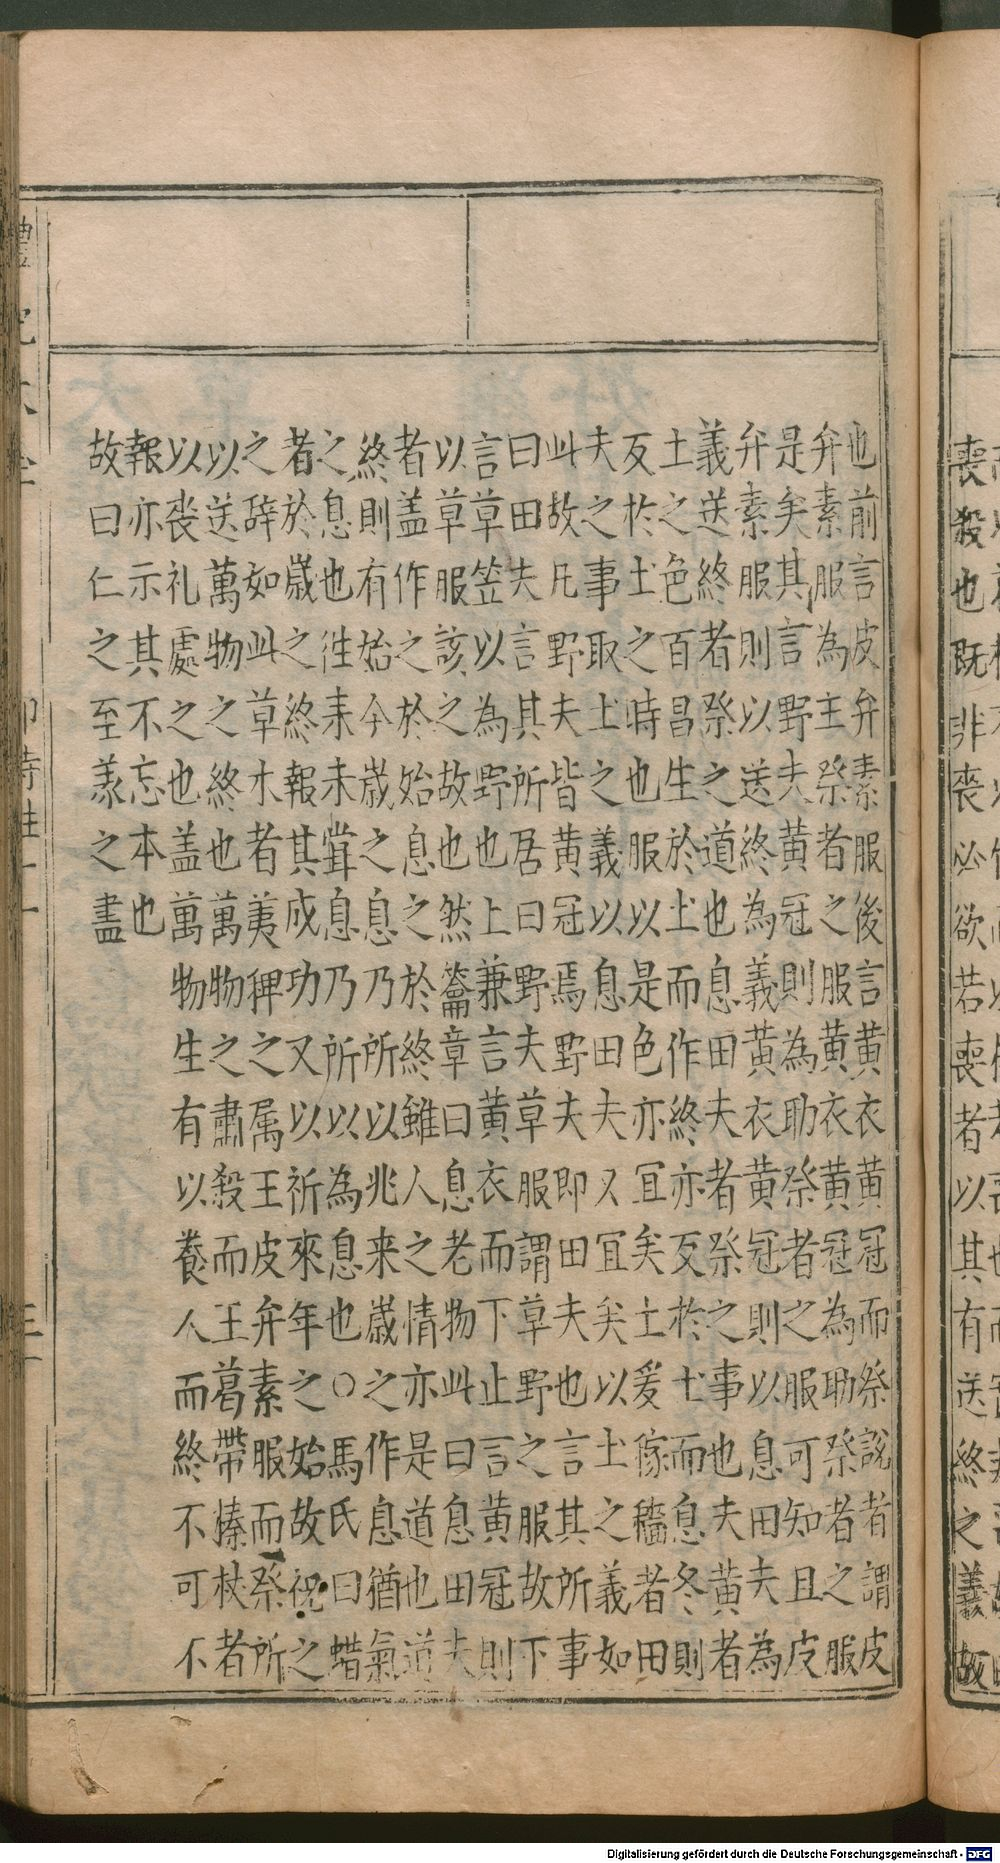 喪殺也既非喪必欲若喪者以其有送終之義故
也前言皮弁素服後言黃衣黃冠而祭說者謂皮
弁素服為主祭者之服黃衣黃冠為助祭者之服
是矣其言野夫黃冠則為助祭者之服可知且皮
弁素服則以送終為義黃衣黃冠則以息田夫為
義送終者祭之道也息田夫者祭之事也夫黃者
土之色百昌生於土而作終亦反於土而息冬則
反於土之時也服以是色亦宜矣土爰稼穡者田
夫之事取土之義以息田夫又宜矣以土之義如
此故凡野夫皆黃冠焉野夫即田夫也言其所事
曰田夫言其所居曰野夫草服謂草野之服故下
言草笠以為野也上兼言黃衣而下止言黃冠則
以草服該之故也然籥章曰息老物此曰息田夫
者盖作之於始息之於終雖人之情亦是道也道
終則有始今歲之息乃所以兆来歲之作息猶氣
之息也徃耒未甞息乃所以為息也○馬氏曰蜡
者於歲之終報其成功又以祈來年之始故祝之
之辞如此草木者荑稗之属王皮弁素服而祭所
以送萬物之終也萬物之肅殺而王葛帶榛杖者
以丧礼處之也盖萬物生有以養人而終不可不
報亦示其不忘本也
故曰仁之至義之盡
Digitalisierung gefördert durch die Deutsche Forschungsgemeinschaft - DFG